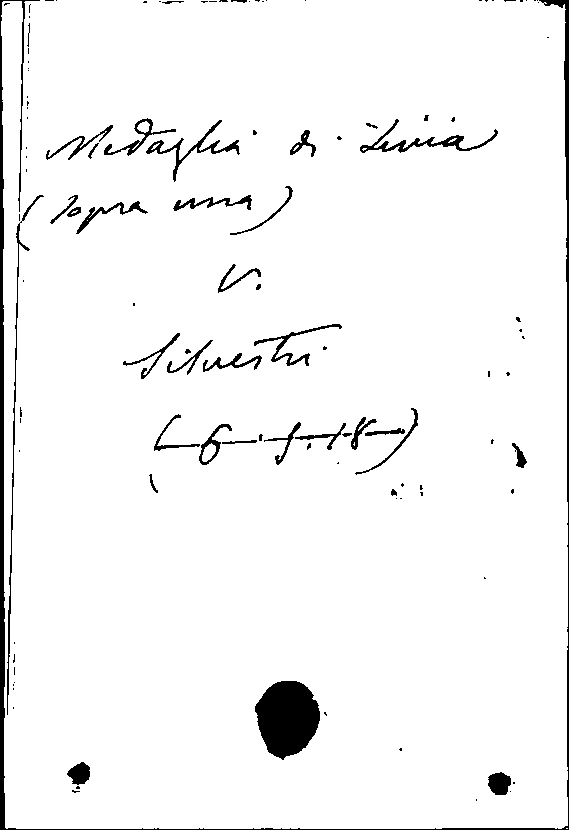 Medaglia di Livia
(sopra una)
V.
Silvestri
(6.J.18)